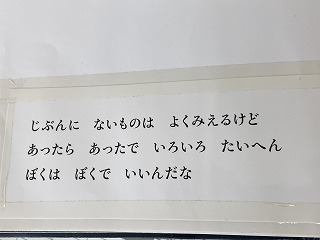 じぶんに　ないものは　よくみえるけど
あったら　あったで　いろいろ　たいへん
ぼくは　ぼくで　いいんだな